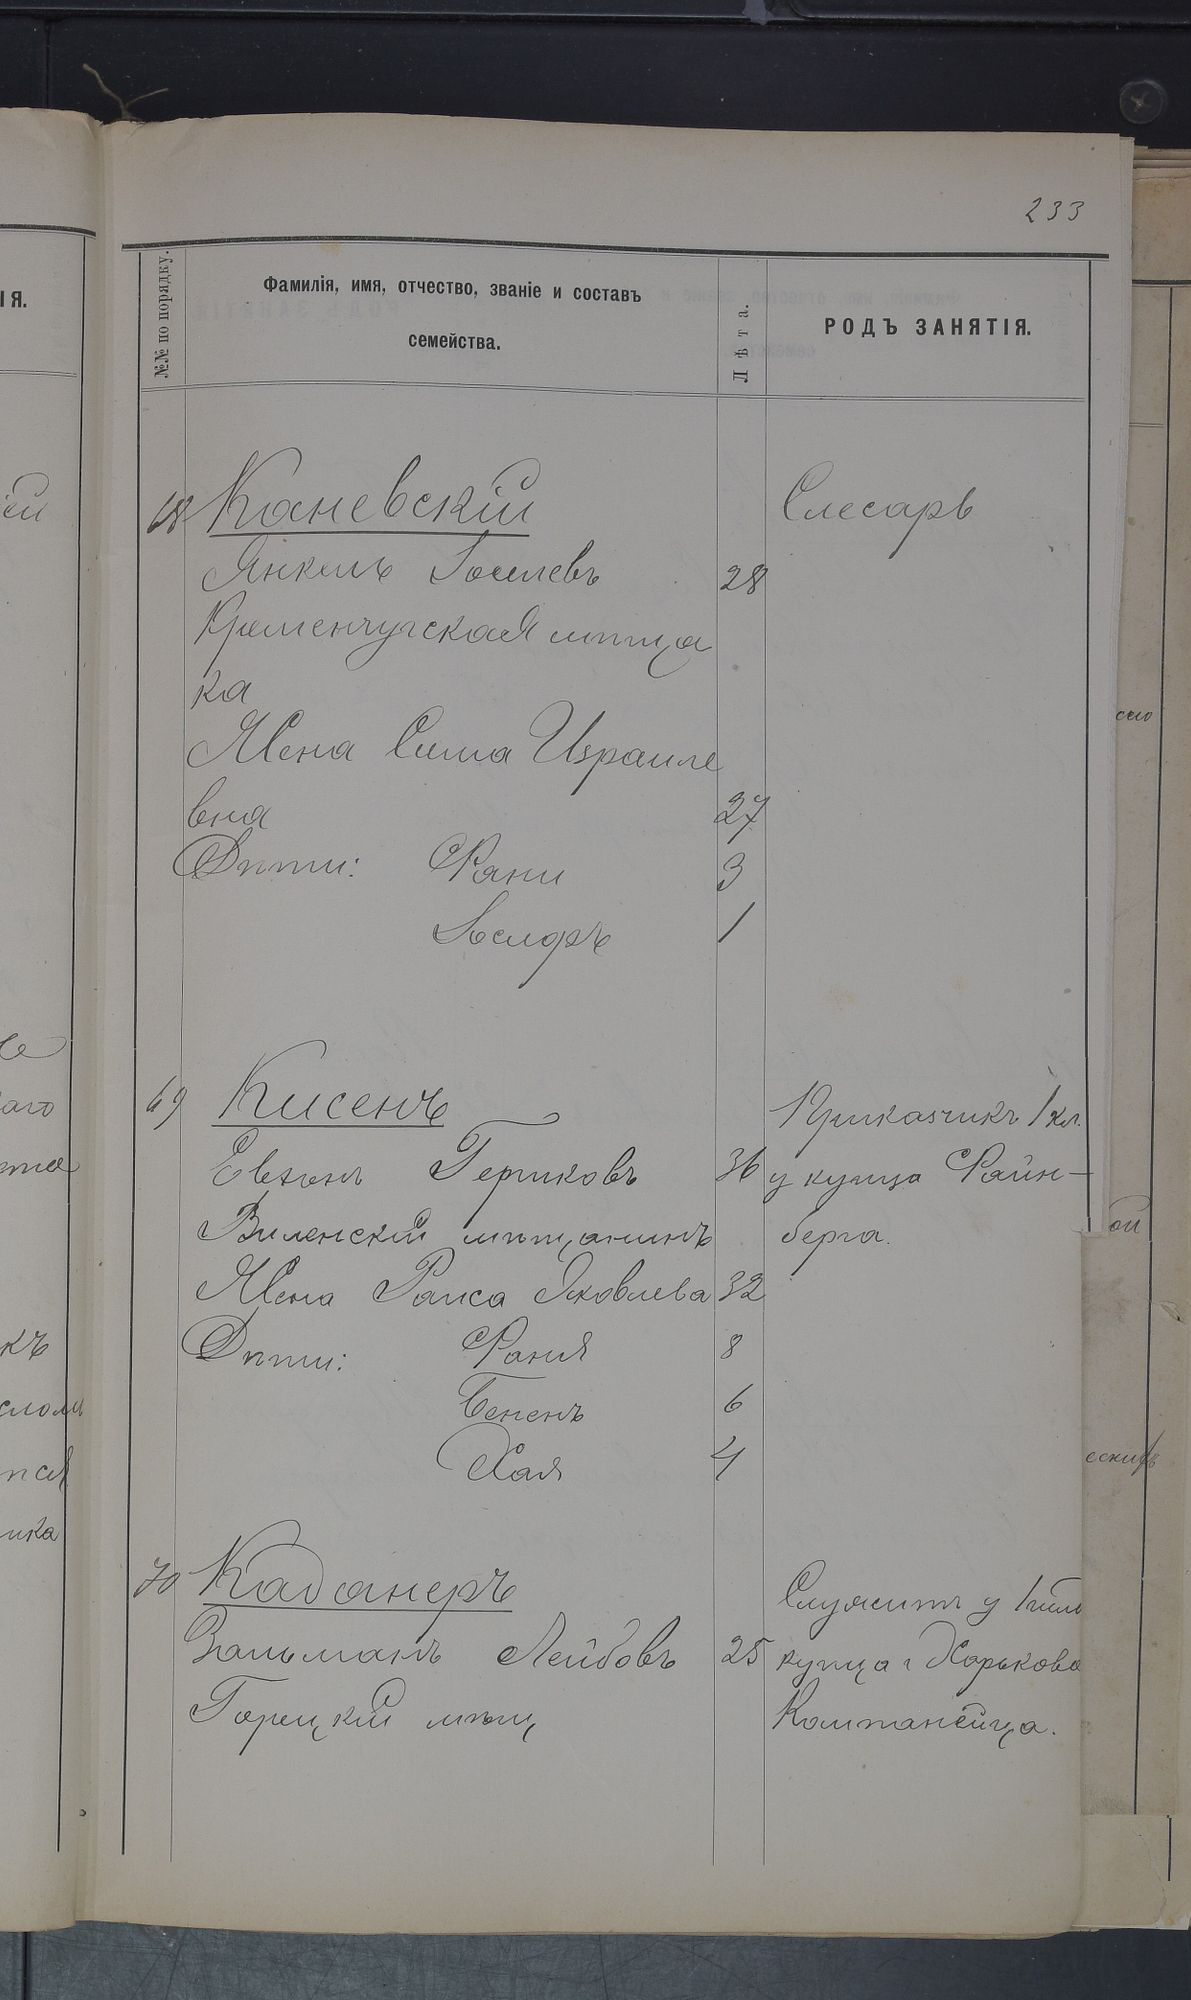 233
№№ по порядку.
Фамилія, имя, отчество, званіе и составъ
семейства.
Лѣта.
РОДЪ ЗАНЯТІЯ.
68 Каневскій Слесарь
Янкель Іоселевъ 28
Кременчугская мѣща
ка
Жена Сима Израиле
вна 27
Дѣти: Фани 3
Іосифъ 1
69 Кисенъ Приказчикъ 1 кл.
Гершковъ 36 у купца Файн-
Виленскій мѣщанинъ берга.
Жена Раиса Яковлева 32
Дѣти: Фаня 8
6
Хая 4
70 Каданеръ Служитъ у 1 гил
Зальманъ Лейбовъ 25 купца г Харькова
Горецкій мѣщ Компанейца.